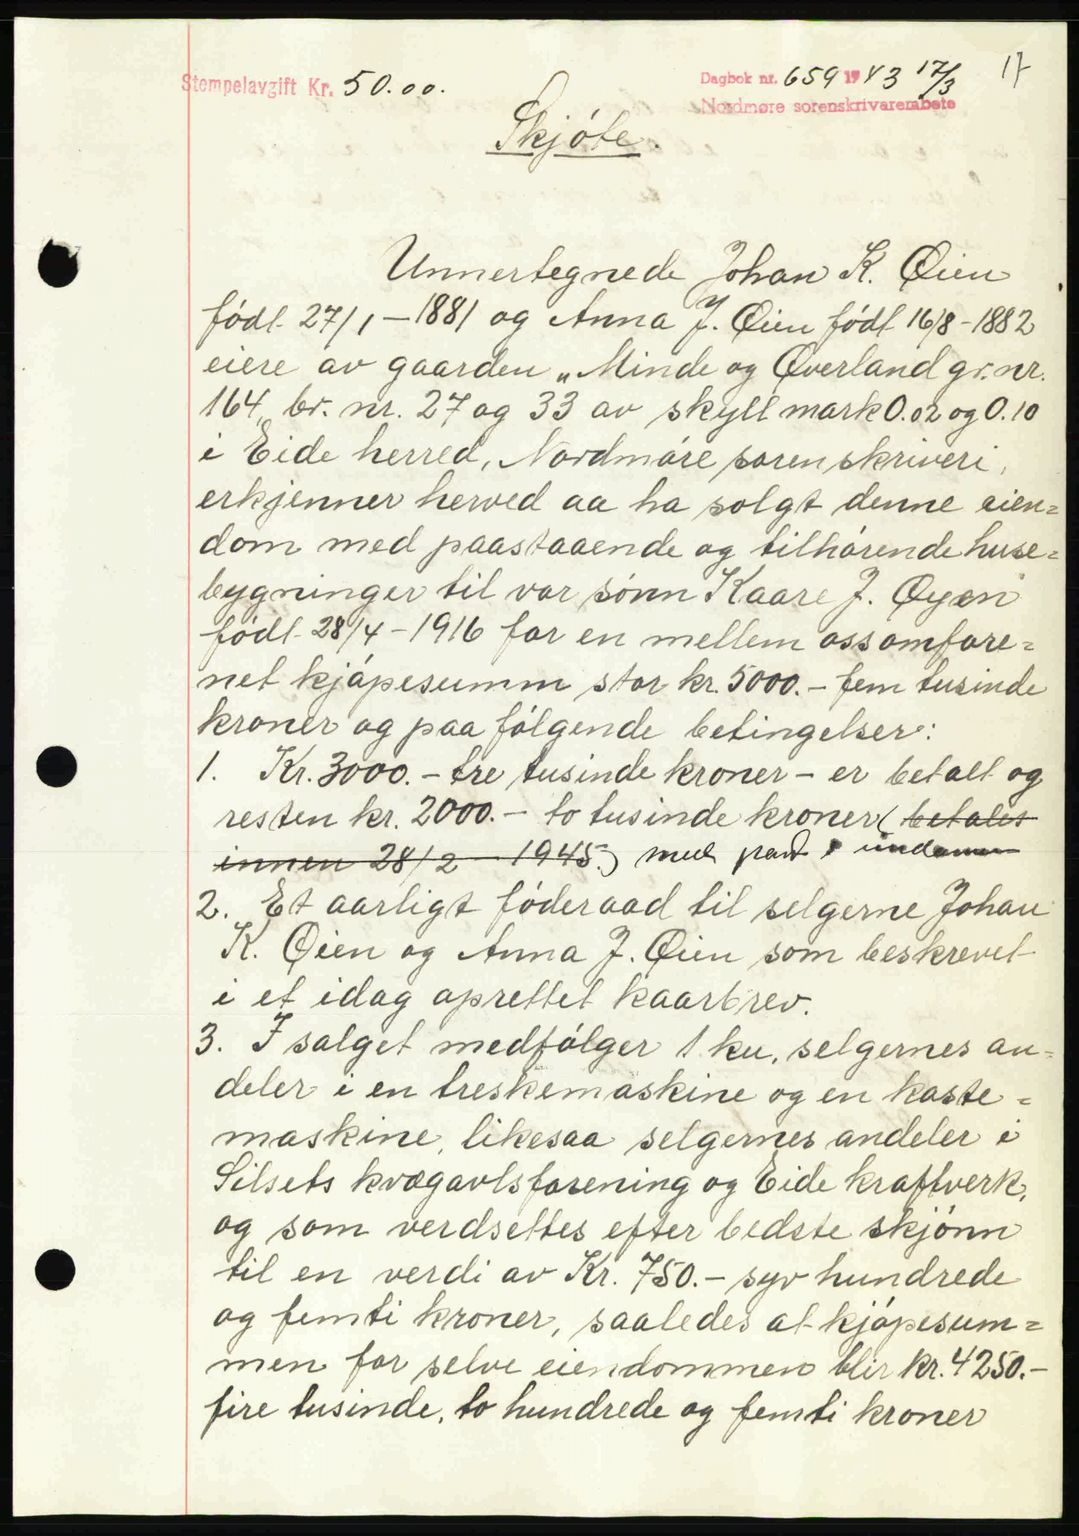 Stempelavgift Kr. 50.00.
Dagbok nr. 659 1943 17/3
Nordmøre sorenskrivarembete
17
Skjøte.
Unnertegnede Johan K. Øien
født 27/1 – 1881 og Anna J. Øien født 16/8 – 1882
eiere av gaarden „Minde og Øverland gr. nr.
164, br. nr. 27 og 33 av skyll mark 0.02 og 0.10
i Eide herred, Nordmøre sorenskriveri,
erkjenner herved aa ha solgt denne eien=
dom med paastaaende og tilhørende huse=
bygninger til vor sønn Kaare J. Øyen
født 28/4 – 1916 for en mellem oss omfore=
net kjøpesumm stor kr. 5000.– fem tusinde
kroner og paa følgende betingelser:
1. Kr. 3000.– tre tusinde kroner – er betalt og
resten kr. 2000.– to tusinde kroner (betales
innen 28/2 – 1945.) med pant i
2. Et aarligt føderaad til selgerne Johan
K. Øien og Anna J. Øien som beskrevet
i et idag oprettet kaarbrev.
3. I salget medfølger 1 ku, selgernes an=
deler i en treskemaskine og en kaste=
maskine, likesaa selgernes andeler i
Silsets kvægavlsforening og Eide kraftverk,
og som verdsettes efter bedste skjønn
til en verdi av Kr. 750.– syv hundrede
og femti kroner, saaledes at kjøpesum=
men for selve eiendommen blir kr. 4250.–
fire tusinde, to hundrede og femti kroner